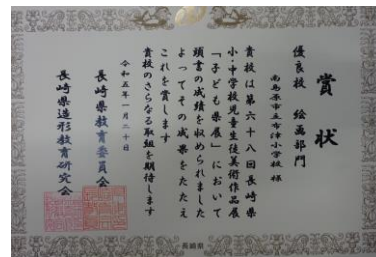 賞状
優良校 絵画部門
南島原市立布津小学校 様
貴校は第六十八回長崎県
小・中学校児童生徒美術作品展
「子ども県展」において
頭書の成績を収められました
よってその成果をたたえ
これを賞します
貴校のさらなる取組を期待します
令和五年一月二十日
長崎県教育委員会
長崎県造形教育研究会
長崎県